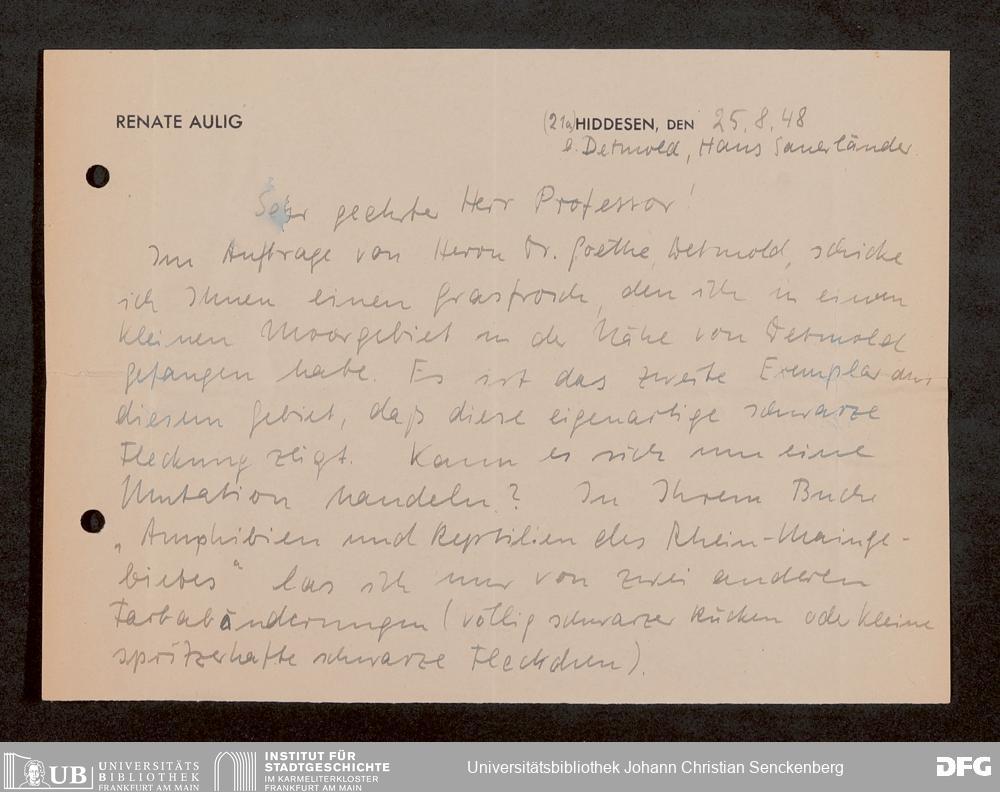 RENATE AULIG
(21a) HIDDESEN, DEN 25.8.48
b. Detmold, Haus Sauerländer.
Sehr geehrter Herr Professor!
Im Auftrage von Herrn Dr. Goethe, Detmold, schicke
ich Ihnen einen Grasfrosch, den ich in einem
kleinen Moorgebiet in der Nähe von Detmold
gefangen habe. Es ist das zweite Exemplar aus
diesem Gebiet, daß diese eigenartige schwarze
Fleckung zeigt. Kann es sich um eine
Mutation handeln? In Ihrem Buche
„Amphibien und Reptilien des Rhein-Mainge-
bietes" las ich nur von zwei anderen
Farbabänderungen (völlig schwarzer Rücken oder kleine
spritzerhafte schwarze Fleckchen).
UB UNIVERSITÄTS
BIBLIOTHEK
FRANKFURT AM MAIN
INSTITUT FÜR
STADTGESCHICHTE
IM KARMELITERKLOSTER
FRANKFURT AM MAIN
Universitätsbibliothek Johann Christian Senckenberg
DFG